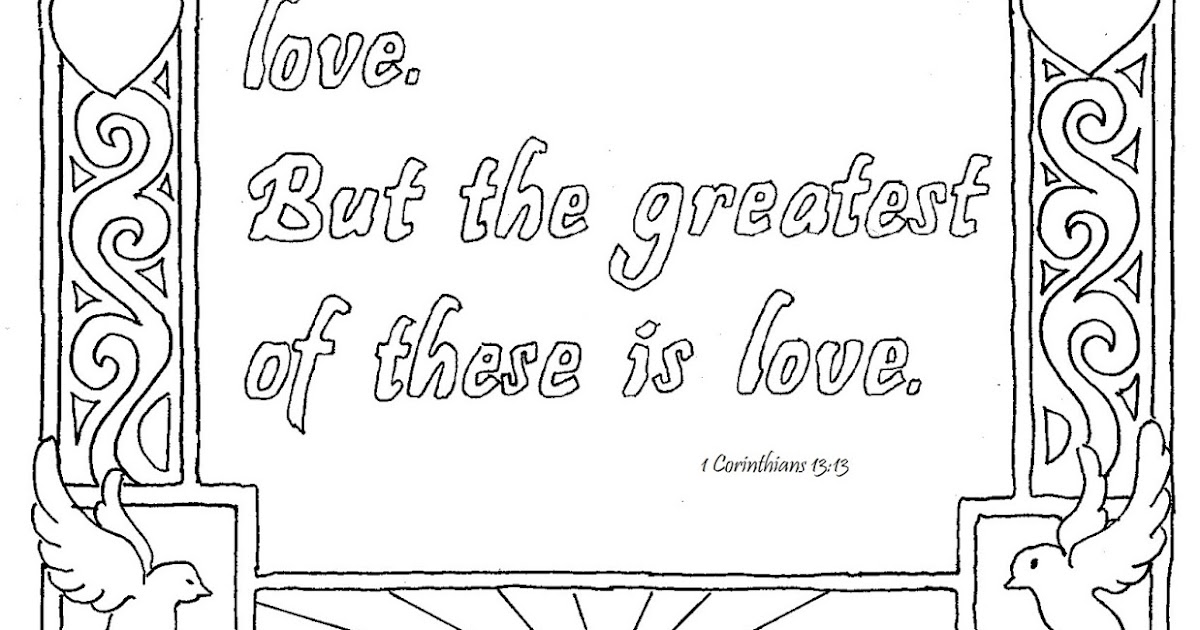 love.
But the greatest
of these is love.
1 Corinthians 13:13